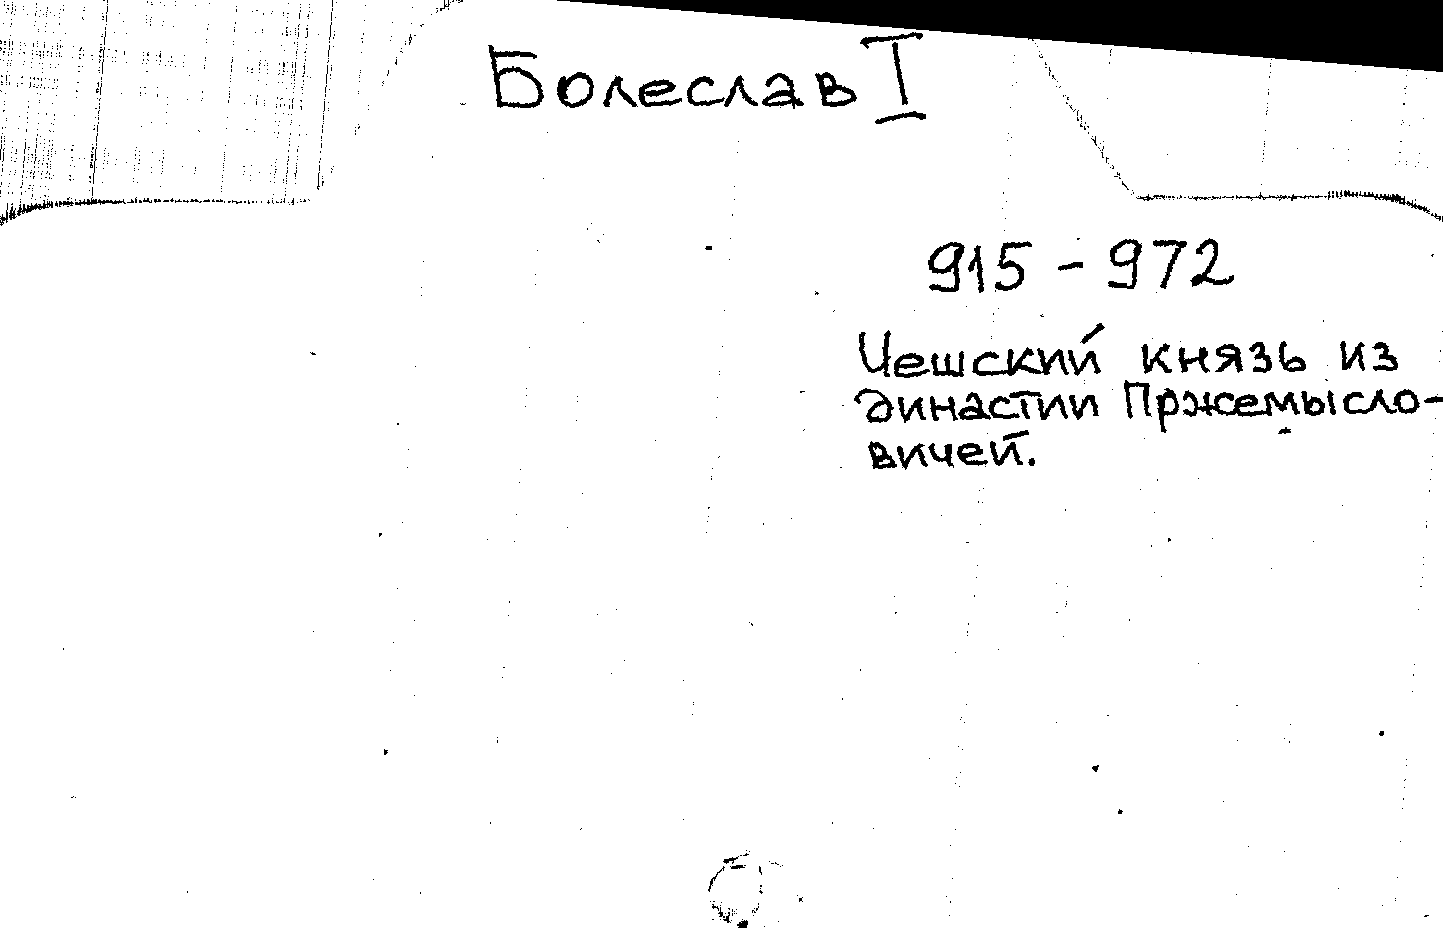 Болеслав I
915 - 972
Чешский князь из
династии Пржемысло-
вичей.